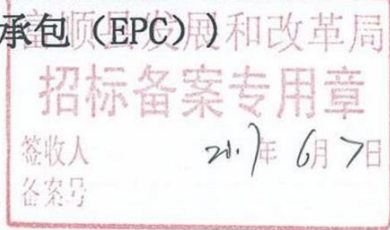 承包（EPC））
富顺县发展和改革局
招标备案专用章
签收人 2017年 6月 7日
备案号